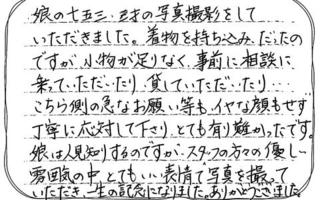 娘の七五三、3才の写真撮影をして
いただきました。着物を持ち込みだったの
ですが、小物が足りなく、事前に相談に
乗っていただいたり、貸していただいたり…
こちら側の急なお願い等も、イヤな顔もせず
丁寧に応対して下さり、とても有り難かったです。
娘は人見知りするのですが、スタッフの方々の優しい
雰囲気の中、とてもいい表情で写真を撮って
いただき、一生の記念になりました。ありがとうございました。